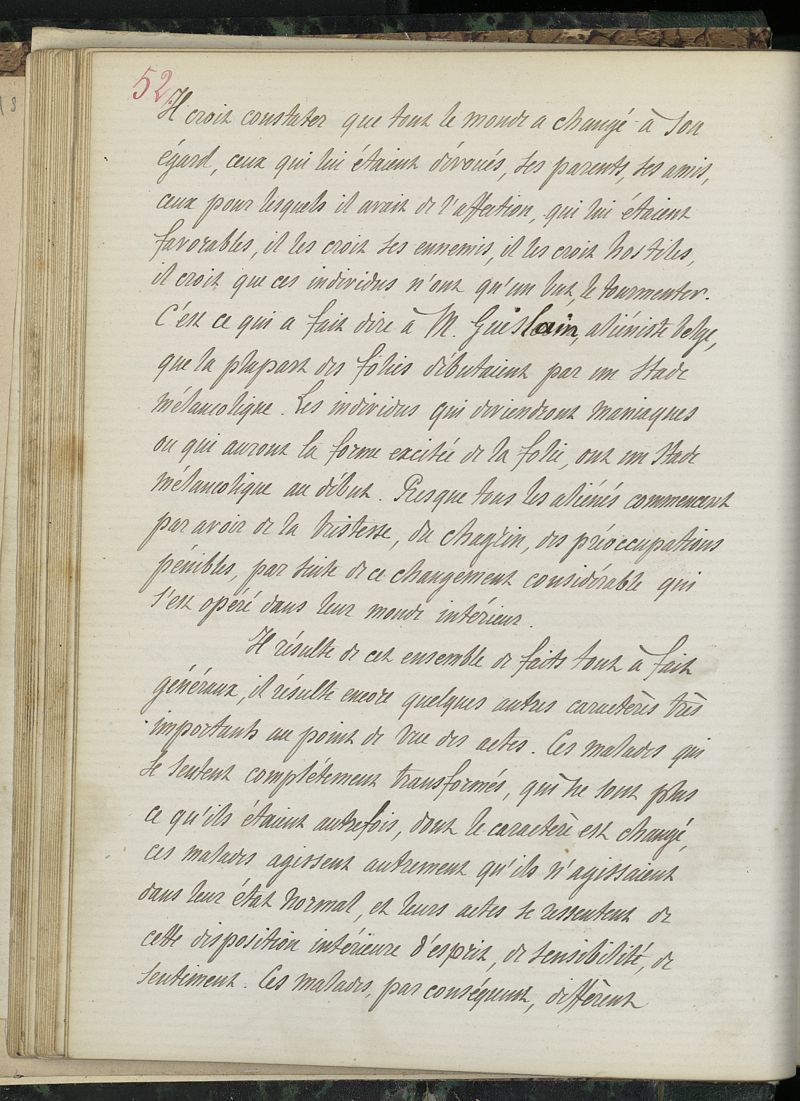 52
Il croit constater que tout le monde a changé à son
égard, ceux qui lui étaient dévoués, ses parents, ses amis,
ceux pour lesquels il avait de l'affection, qui lui étaient
favorables, il les croit ses ennemis, il les croit hostiles,
il croit que ces individus n'ont qu'un but, le tourmenter.
C'est ce qui a fait dire à M. Guislain, aliéniste belge,
que la plupart des folies débutaient par un stade
mélancolique. Les individus qui deviendront maniaques
ou qui auront la forme excitée de la folie, ont un stade
mélancolique au début. Presque tous les aliénés commencent
par avoir de la tristesse, du chagrin, des préoccupations
pénibles, par suite de ce changement considérable qui
s'est opéré dans leur monde intérieur.
Il résulte de cet ensemble de faits tout à fait
généraux, il résulte encore quelques autres caractères très
importants au point de vue des actes. Ces malades qui
se sentent complétement transformés, qui ne sont plus
ce qu'ils étaient autrefois, dont le caractère est changé,
ces malades agissent autrement qu'ils n'agissaient
dans leur état normal, et leurs actes se ressentent de
cette disposition intérieure d'esprit, de sensibilité, de
sentiment. Ces malades, par conséquent, diffèrent